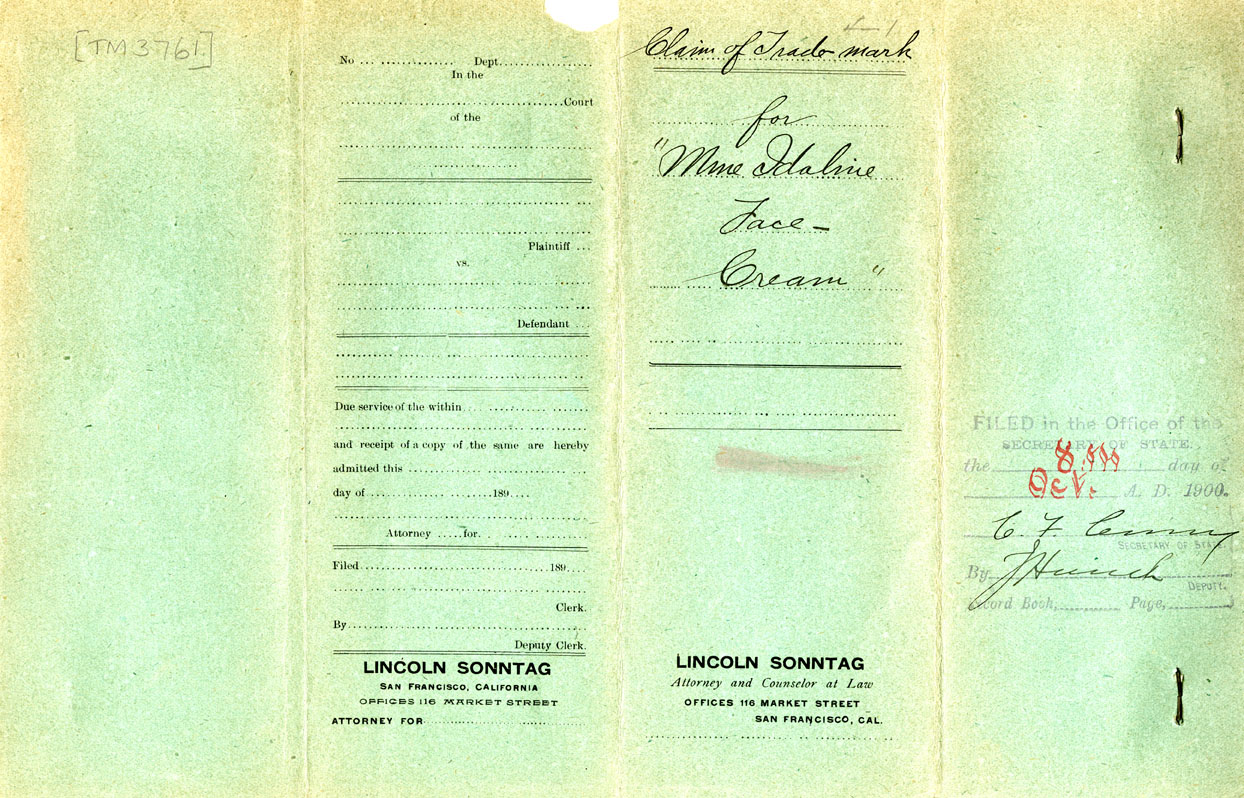 [TM3761]
No ... Dept.
In the
Court
of the
Plaintiff ...
vs.
Defendant ...
Due service of the within
and receipt of a copy of the same are hereby
admitted this
day of 189
Attorney for
Filed 189
Clerk.
By
Deputy Clerk.
LINCOLN SONNTAG
SAN FRANCISCO, CALIFORNIA
OFFICES 116 MARKET STREET
ATTORNEY FOR
Claim of Trade mark
for
"Mme Idaline
Face -
Cream"
LINCOLN SONNTAG
Attorney and Counselor at Law
OFFICES 116 MARKET STREET
SAN FRANCISCO, CAL.
FILED in the Office of the
SECRETARY OF STATE.
the 8th day of
Oct. A. D. 1900.
C. F. Curry
SECRETARY OF STATE.
By J Hoesch
DEPUTY.
Record Book, Page,